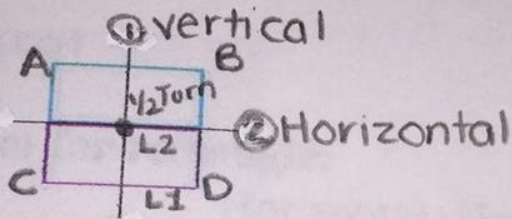 ① vertical
A B
1/2 Turn
② Horizontal
L2
C L1 D